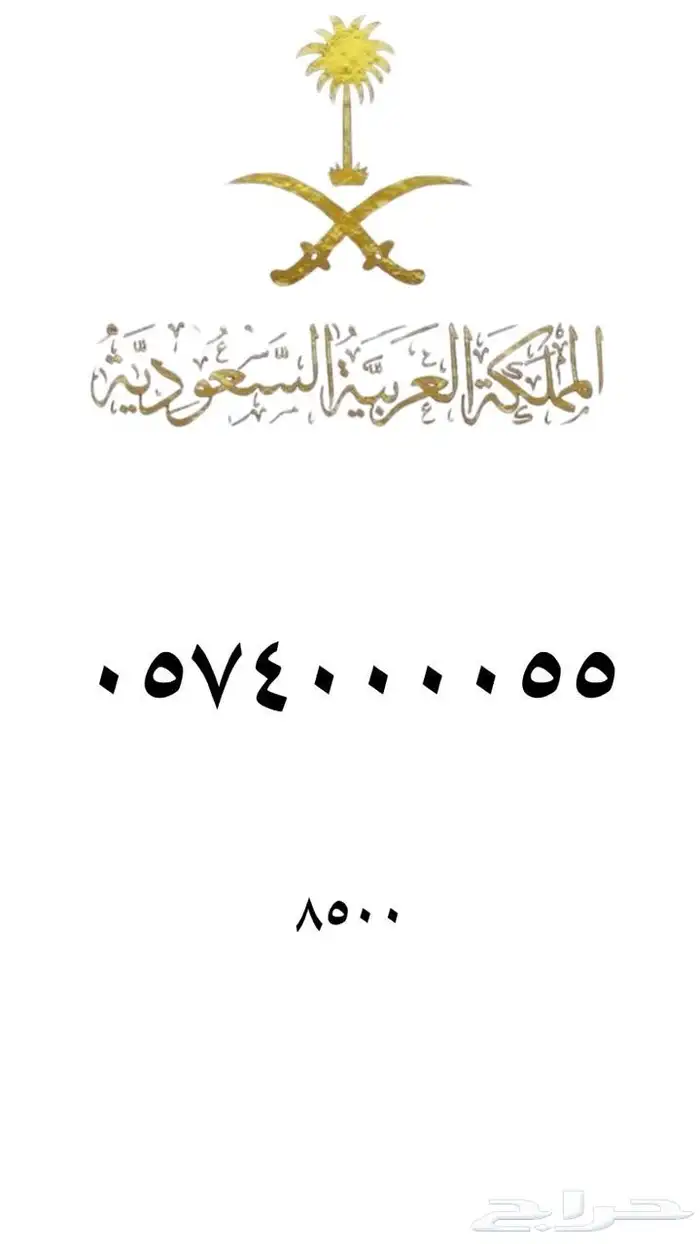 المملكة العربية السعودية
٠٥٧٤٠٠٠٠٥٥
٨٥٠٠
حراج